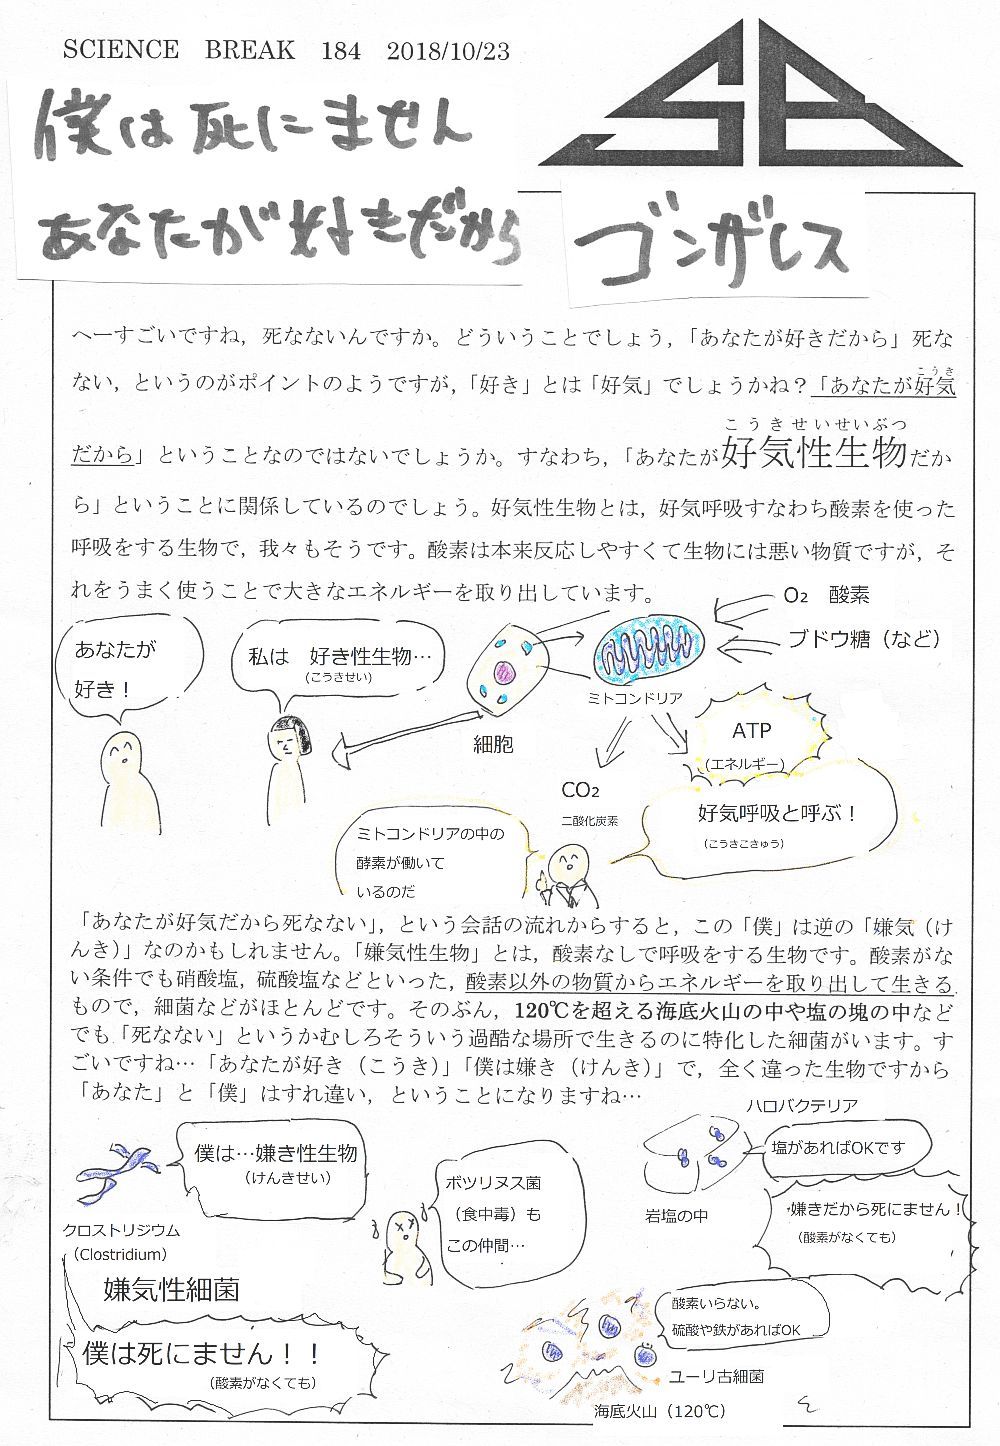 SCIENCE BREAK 184 2018/10/23
SB
僕は死にません
あなたが好きだから
ゴンザレス
へーすごいですね，死なないんですか。どういうことでしょう，「あなたが好きだから」死な
ない，というのがポイントのようですが，「好き」とは「好気」でしょうかね？「あなたが好気
こうき
だから」ということなのではないでしょうか。すなわち，「あなたが好気性生物だか
こうきせいせいぶつ
ら」ということに関係しているのでしょう。好気性生物とは，好気呼吸すなわち酸素を使った
呼吸をする生物で，我々もそうです。酸素は本来反応しやすくて生物には悪い物質ですが，そ
れをうまく使うことで大きなエネルギーを取り出しています。
O₂ 酸素
ブドウ糖（など）
あなたが
好き！
私は 好き性生物…
（こうきせい）
ミトコンドリア
細胞
ATP
（エネルギー）
CO₂
二酸化炭素
好気呼吸と呼ぶ！
（こうきこきゅう）
ミトコンドリアの中の
酵素が働いて
いるのだ
「あなたが好気だから死なない」，という会話の流れからすると，この「僕」は逆の「嫌気（け
んき）」なのかもしれません。「嫌気性生物」とは，酸素なしで呼吸をする生物です。酸素がな
い条件でも硝酸塩，硫酸塩などといった，酸素以外の物質からエネルギーを取り出して生きる
もので，細菌などがほとんどです。そのぶん，120℃を超える海底火山の中や塩の塊の中など
でも「死なない」というかむしろそういう過酷な場所で生きるのに特化した細菌がいます。す
ごいですね…「あなたが好き（こうき）」「僕は嫌き（けんき）」で，全く違った生物ですから
「あなた」と「僕」はすれ違い，ということになりますね…
ハロバクテリア
塩があればOKです
僕は…嫌き性生物
（けんきせい）
ボツリヌス菌
（食中毒）も
この仲間…
岩塩の中
嫌きだから死にません！
（酸素がなくても）
クロストリジウム
（Clostridium）
嫌気性細菌
僕は死にません！！
（酸素がなくても）
酸素いらない。
硫酸や鉄があればOK
ユーリ古細菌
海底火山（120℃）